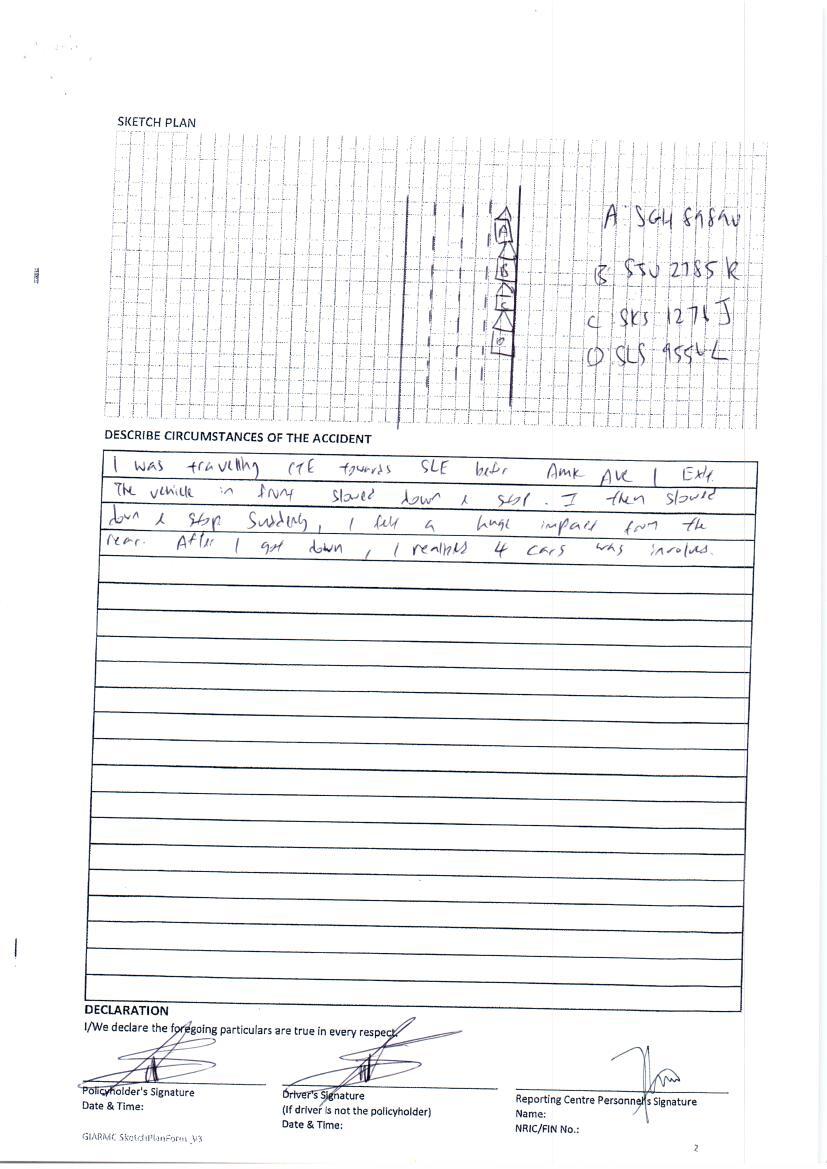 SKETCH PLAN
A
B
C
D
A SGH 8989U
B SJU 2785 K
C SKS 1276 J
D SLS 9556 L
DESCRIBE CIRCUMSTANCES OF THE ACCIDENT
I was travelling CTE towards SLE befor AMK Ave 1 Exit.
The vehicle in front slowed down & stop. I then slowed
down & stop suddenly, I felt a huge impact from the
rear. After I got down, I realised 4 cars was involved.
DECLARATION
I/We declare the foregoing particulars are true in every respect.
Policyholder's Signature
Date & Time:
Driver's Signature
(If driver is not the policyholder)
Date & Time:
Reporting Centre Personnel's Signature
Name:
NRIC/FIN No.:
GIARMC SketchPlanForm_V3
2